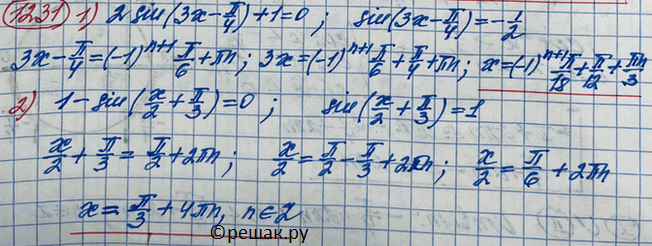 1231) 1) 2 sin(3x - π/4) + 1 = 0; sin(3x - π/4) = -1/2
3x - π/4 = (-1)^(n+1) π/6 + πn; 3x = (-1)^(n+1) π/6 + π/4 + πn; x = (-1)^(n+1) π/18 + π/12 + πn/3
2) 1 - sin(x/2 + π/3) = 0; sin(x/2 + π/3) = 1
x/2 + π/3 = π/2 + 2πn; x/2 = π/2 - π/3 + 2πn; x/2 = π/6 + 2πn
x = π/3 + 4πn, n ∈ Z
©решак.ру